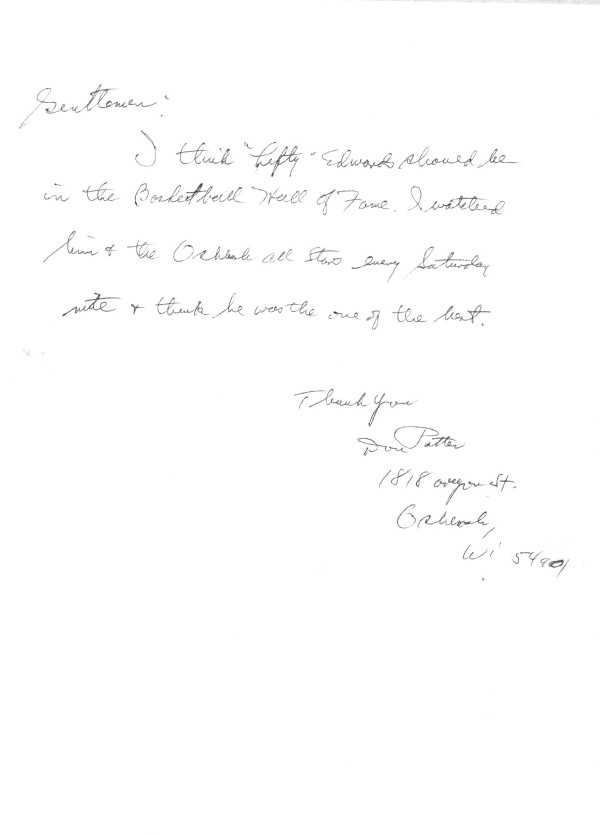 Gentlemen:
I think "Lefty" Edwards should be
in the Basketball Hall of Fame. I watched
him & the Oshkosh all Stars every Saturday
nite & think he was the one of the best.
Thank You
Don Patter
1818 oregon St.
Oshkosh,
Wi 54901